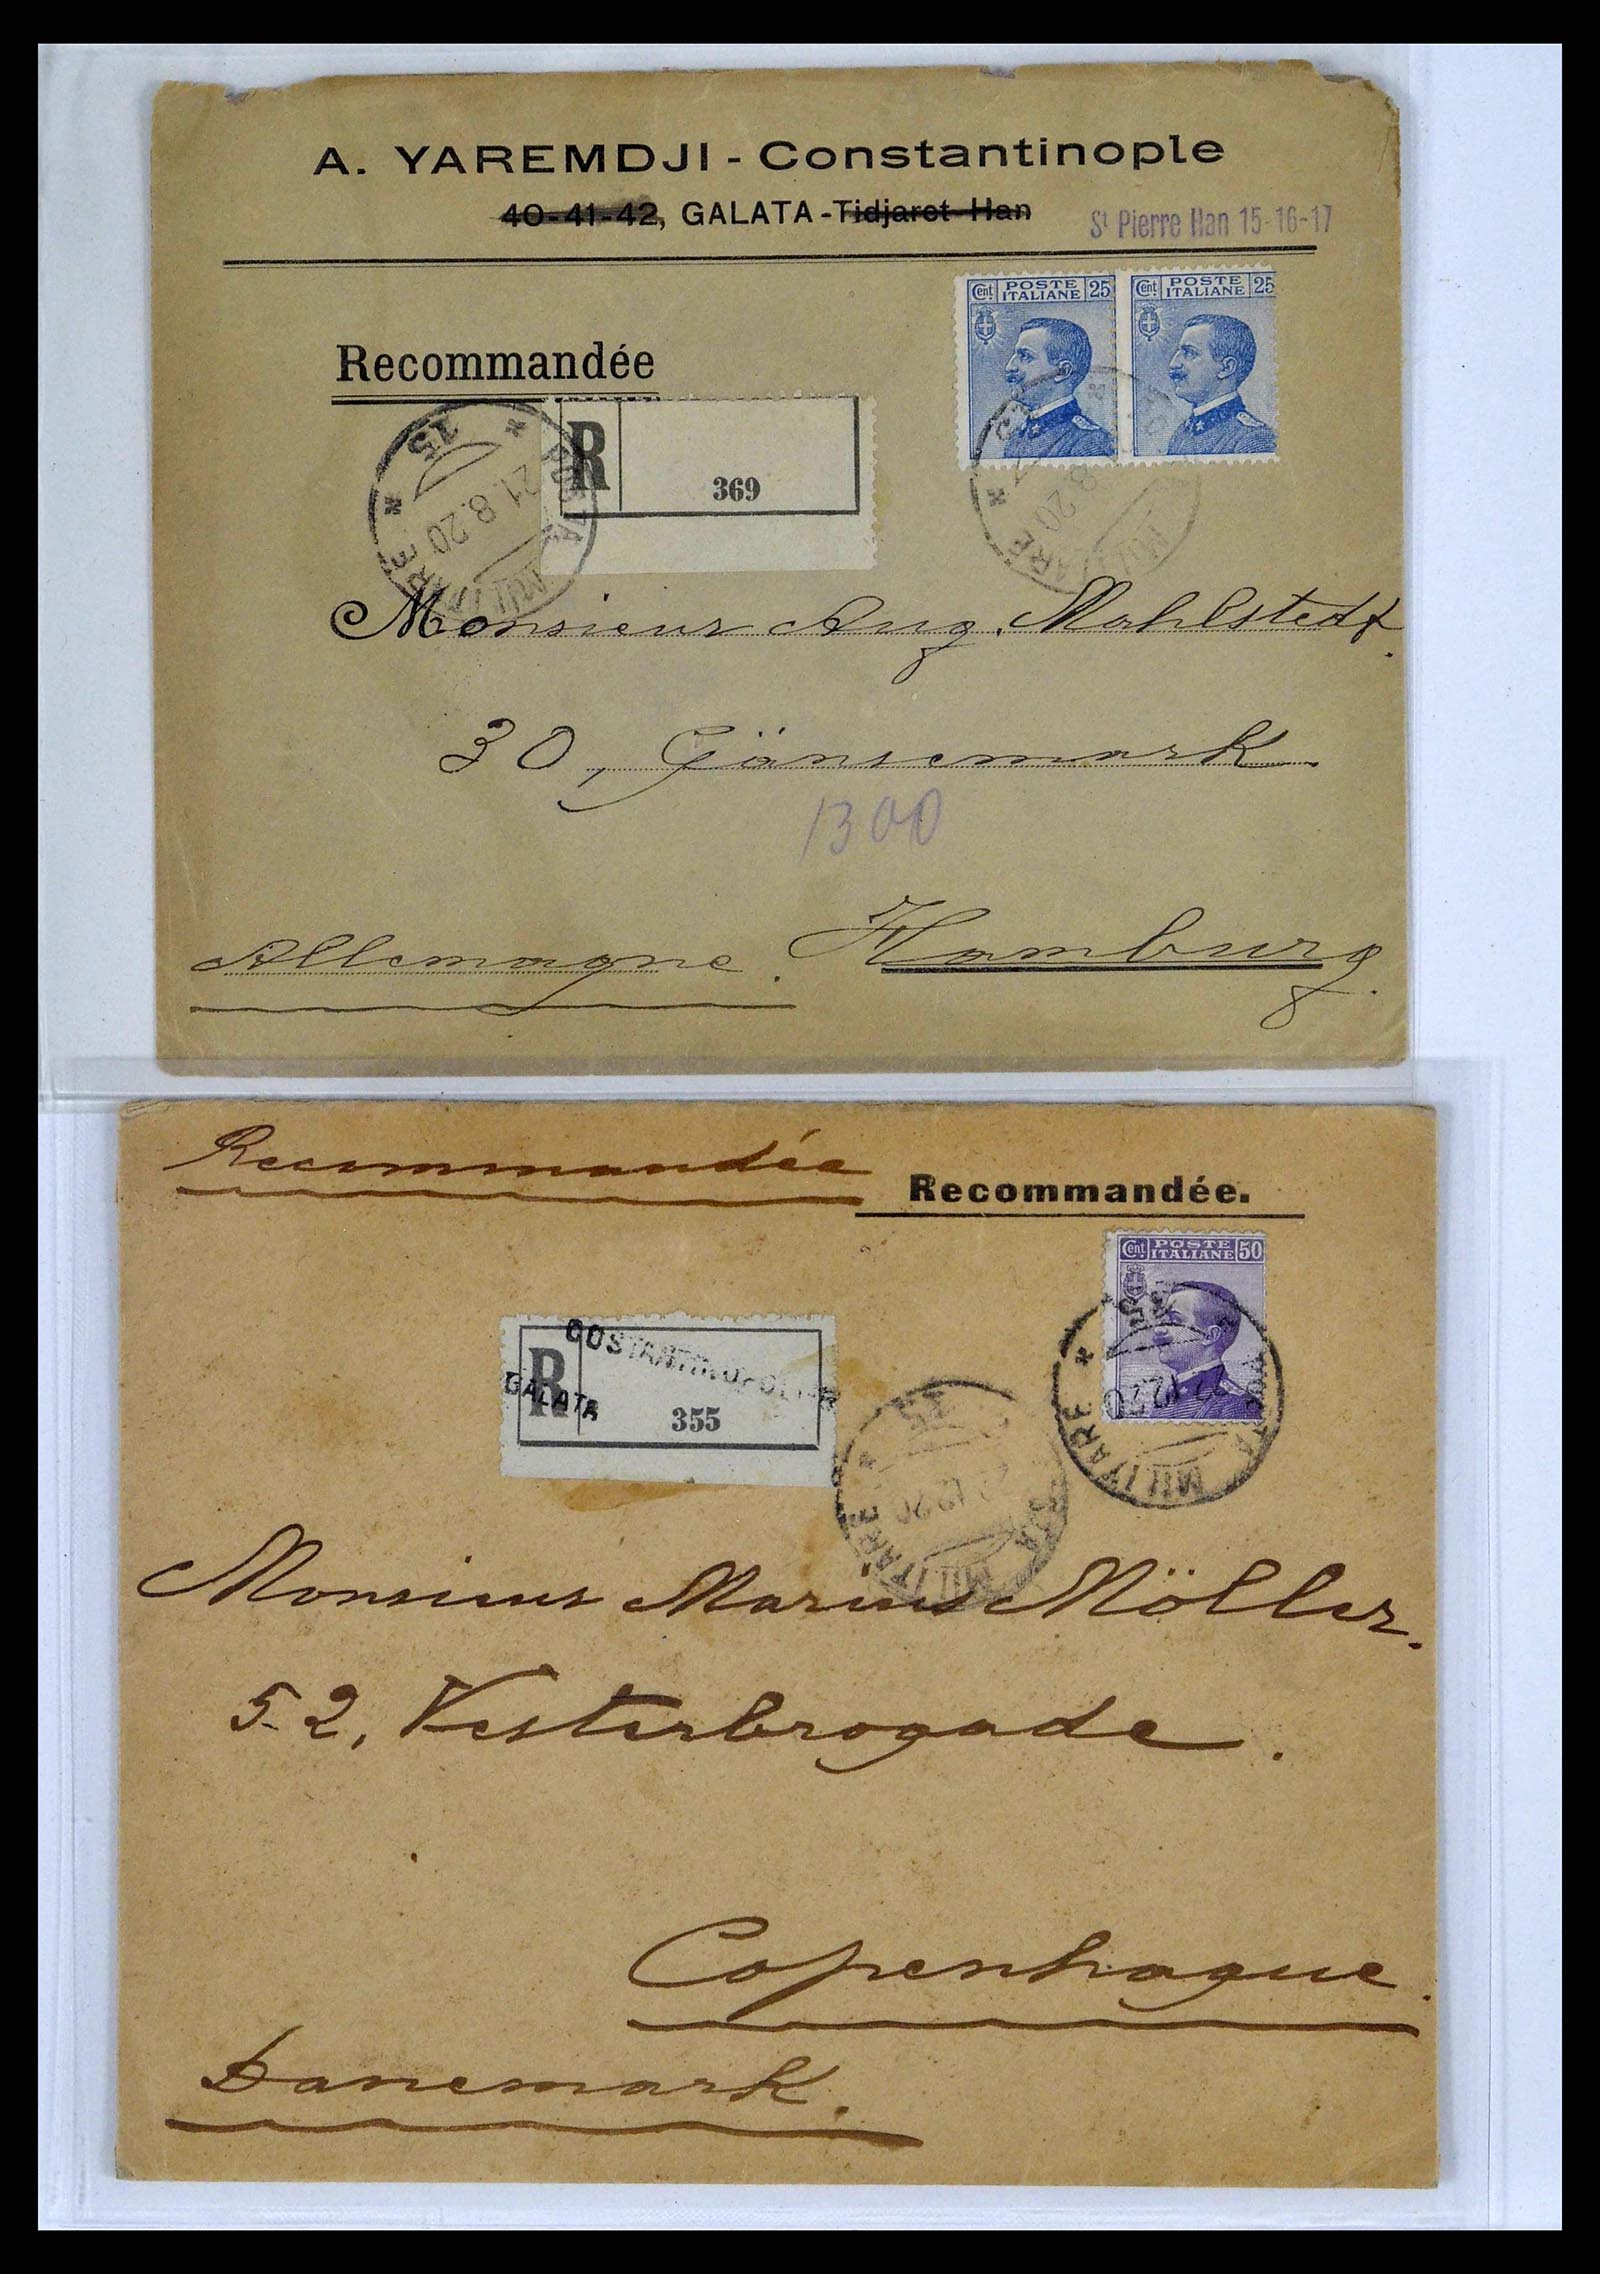 A. YAREMDJI - Constantinople
40-41-42, GALATA - Tidjaret Han
St Pierre Han 15-16-17
Cent POSTE ITALIANE 25
Cent POSTE ITALIANE 25
Recommandée
R
369
15
21.8.20
MILITARE
8.20
MILITARE
Monsieur Aug. Mahlstedt.
30, Gänsemark.
1300
Allemagne. Hamburg.
Recommandée
Recommandée.
Cent POSTE ITALIANE 50
COSTANTINOPOLI
GALATA
R
355
15
POSTA MILITARE
12 20
MILITARE
Monsieur Marius Möller.
52, Vesterbrogade.
Copenhague.
Danemark.